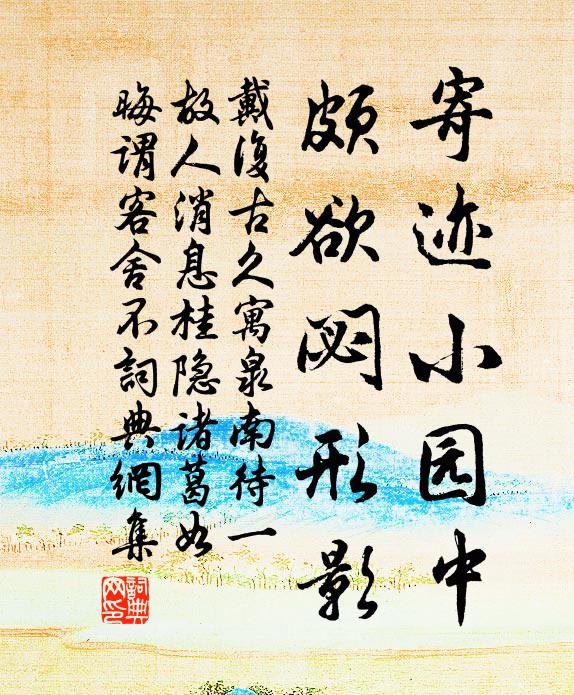 寄迹小园中
颇欲閟形影
戴復古久寓泉南待一
故人消息桂隐诸葛如
晦谓客舍不詞典網集
詞典
网印